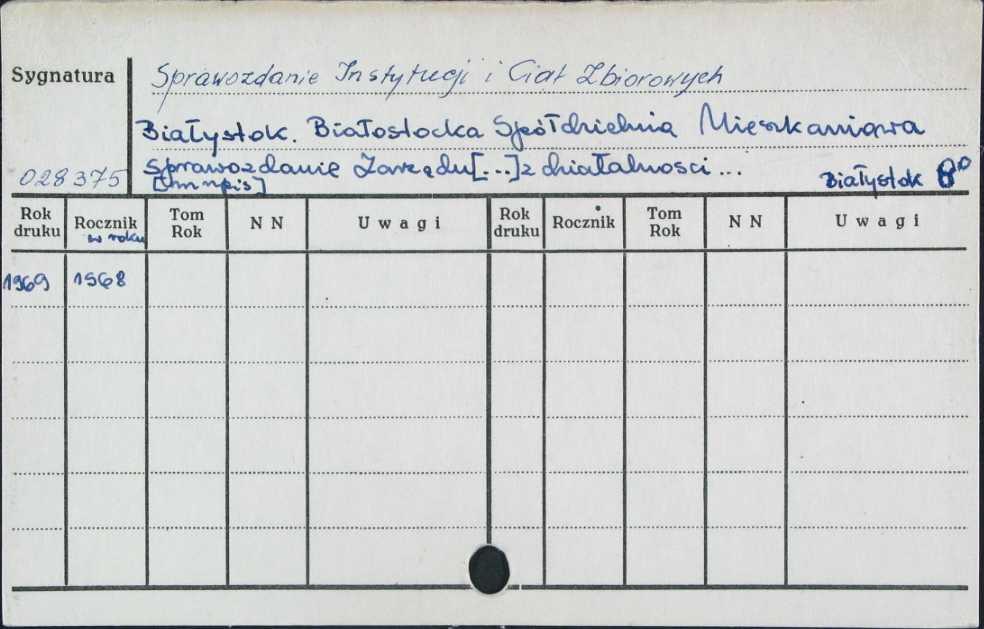 Sygnatura
Sprawozdanie Instytucji i Ciał Zbiorowych
Białystok. Białostocka Spółdzielnia Mieszkaniowa
Sprawozdanie Zarządu [...] z działalności ...
028375
[Mnnpis]
Białystok 8°
Rok druku Rocznik w roku Tom Rok N N Uwagi Rok druku Rocznik Tom Rok N N Uwagi
1969 1968